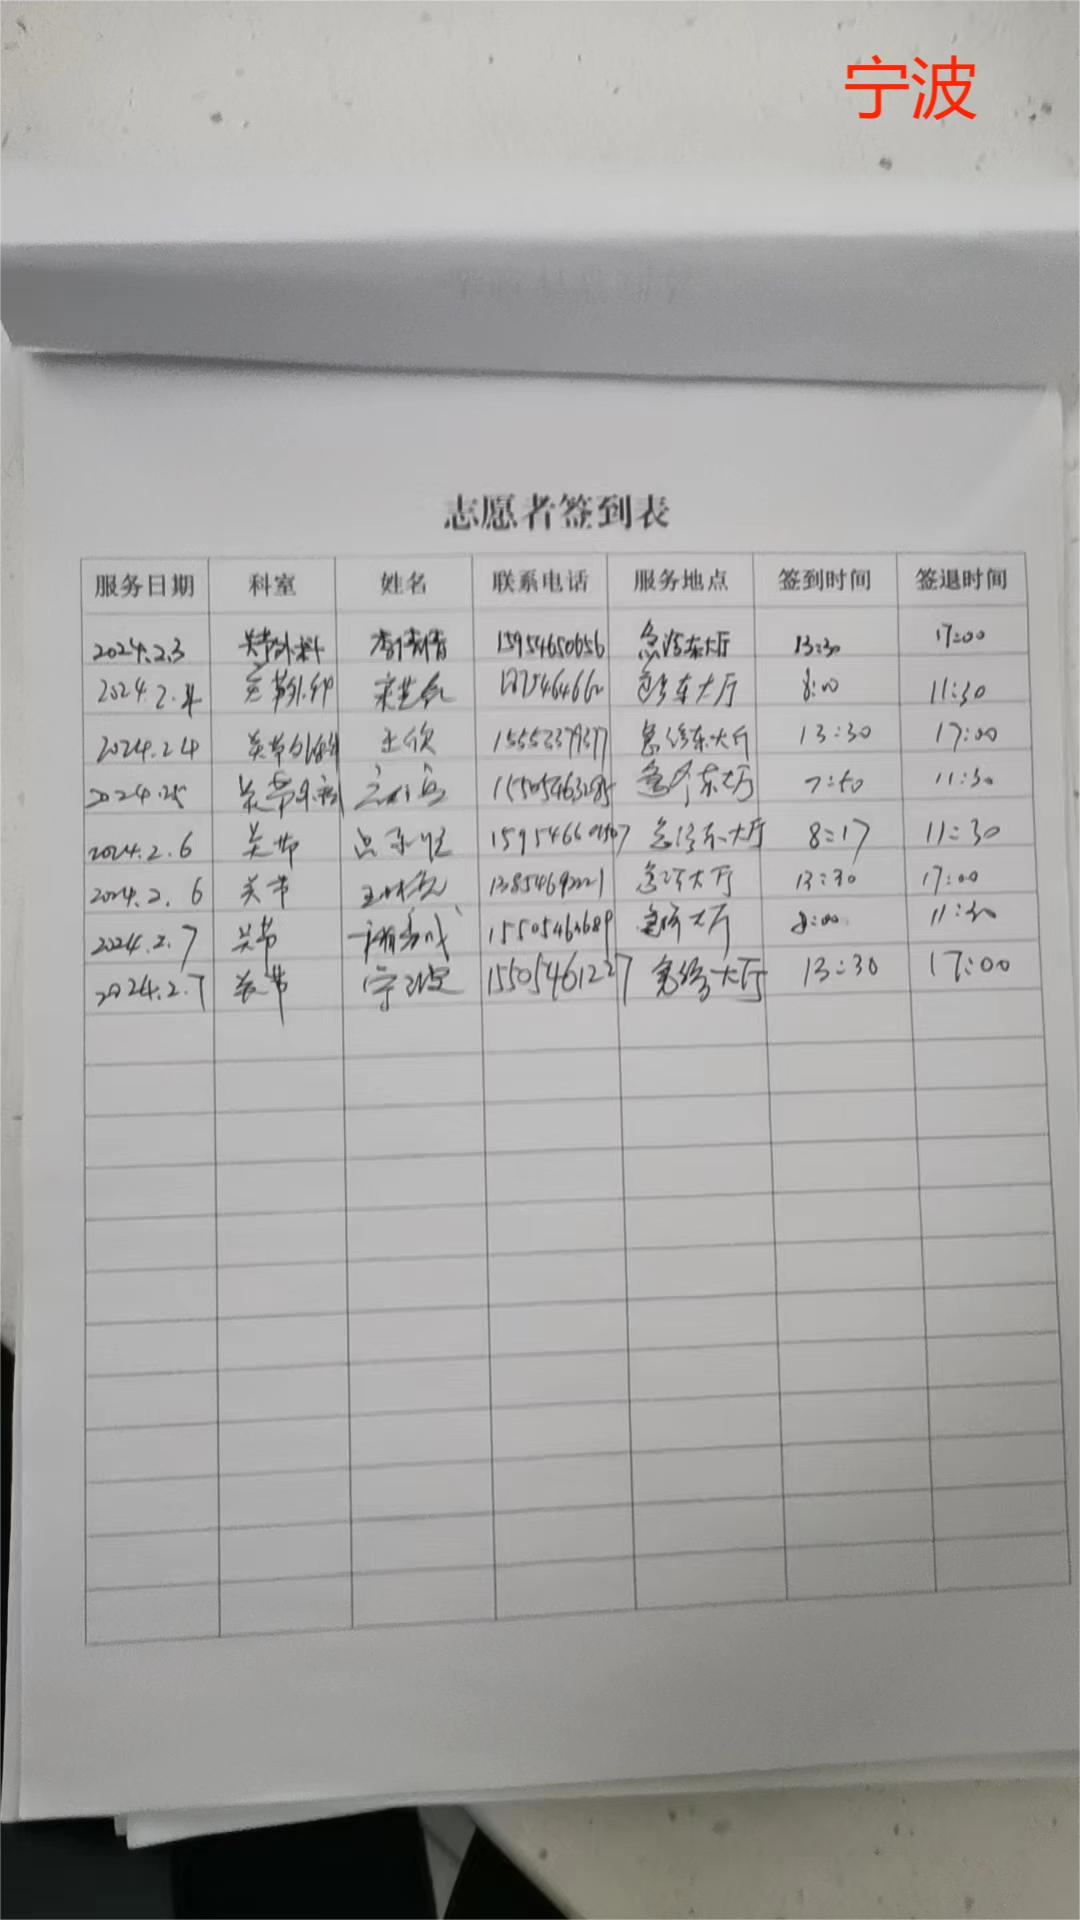 宁波
志愿者签到表
服务日期 科室 姓名 联系电话 服务地点 签到时间 签退时间
2024.2.3 关节外科 15954650656 急诊东大厅 13:30 17:00
2024.2.4 关节外科 急诊东大厅 8:00 11:30
2024.2.4 关节外科 王欣 15552379377 急诊东大厅 13:30 17:00
2024.2.5 关节外科 15505463285 急诊东大厅 7:50 11:30
2024.2.6 关节 急诊东大厅 8:17 11:30
2024.2.6 关节 13854692221 急诊大厅 13:30 17:00
2024.2.7 关节 15505463689 急诊大厅 8:00 11:30
2024.2.7 关节 宁波 15505461227 急诊大厅 13:30 17:00